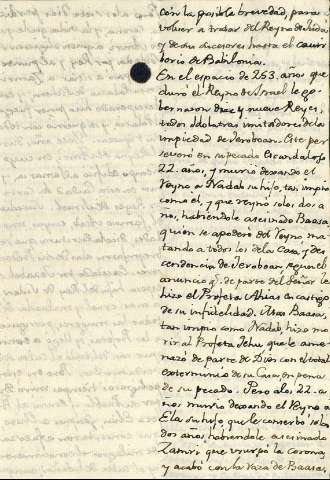 con la posible brevedad, para
volver a tratar del Reyno de Juda,
y de sus sucesores hasta el cauti-
berio de Babilonia.
En el espacio de 253. años que
duró el Reyno de Israel le go-
bernaron diez y nueve Reyes,
todos Idolatras imitadores de la
impiedad de Jeroboan. Este per
severó en su pecado escandaloso
22. años, y murio dexando el
Reyno a Nadab su hijo, tan impio
como el, y que reyno solos dos a
ños, habiendole asesinado Baasa
quien se apoderó del Reyno ma-
tando a todos los de la Casa, y des
cendencia de Jeroboan, segun el
anuncio q.e de parte del Señor le
hizo el Profeta Ahias en castigo
de su infidelidad. Mas Baasa,
tan impio como Nadab, hizo mo
rir al Profeta Jehu que le ame-
nazó de parte de Dios con el total
exterminio de su Casa en pena
de su pecado. Pero a los 22. a
ños murio dexando el Reyno a
Ela su hijo, que le conserbó solos
dos años, habiendole asesinado
Zamri, que usurpó la corona,
y acabó con la raza de Baasa,